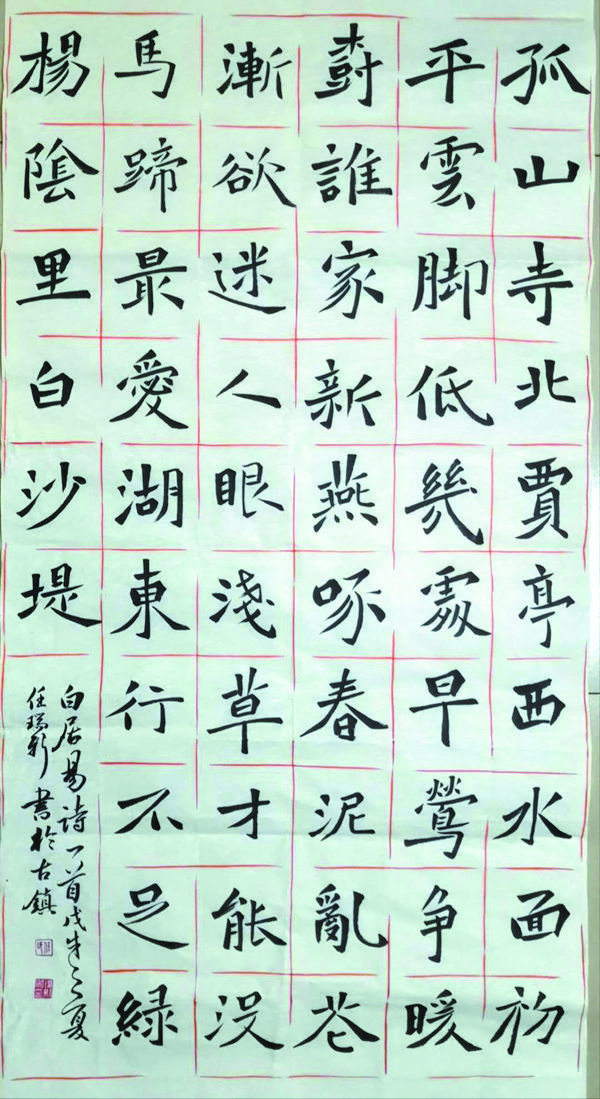 孤山寺北賈亭西水面初
平雲脚低幾處早鶯争暖
樹誰家新燕啄春泥亂花
漸欲迷人眼淺草才能没
馬蹄最愛湖東行不足綠
楊陰里白沙堤
白居易詩一首戊之夏
任瑞新書於古鎮